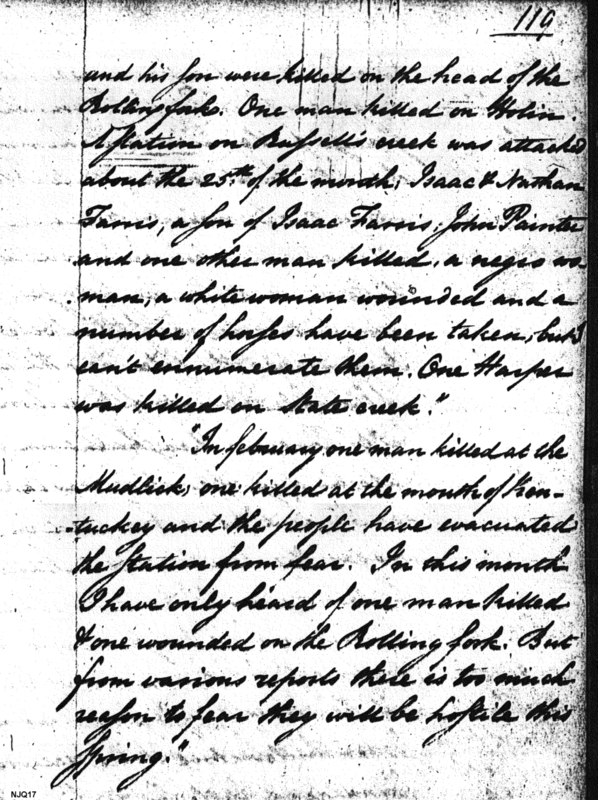 119
and his son were killed on the head of the
Rolling fork. One man killed on Holin.
A station on Russell's creek was attacked
about the 25th of the month; Isaac & Nathan
Farris, a son of Isaac Farris; John Painter
and one other man killed, a negro wo-
man, a white woman wounded and a
number of horses have been taken, but I
can't ennumerate them. One Harper
was killed on State creek."
"In february one man killed at the
Mudlick; one killed at the mouth of Ken-
tuckey and the people have evacuated
the station from fear. In this month
I have only heard of one man killed
& one wounded on the Rolling fork. But
from various reports there is too much
reason to fear they will be hostile this
Spring."
NJQ17